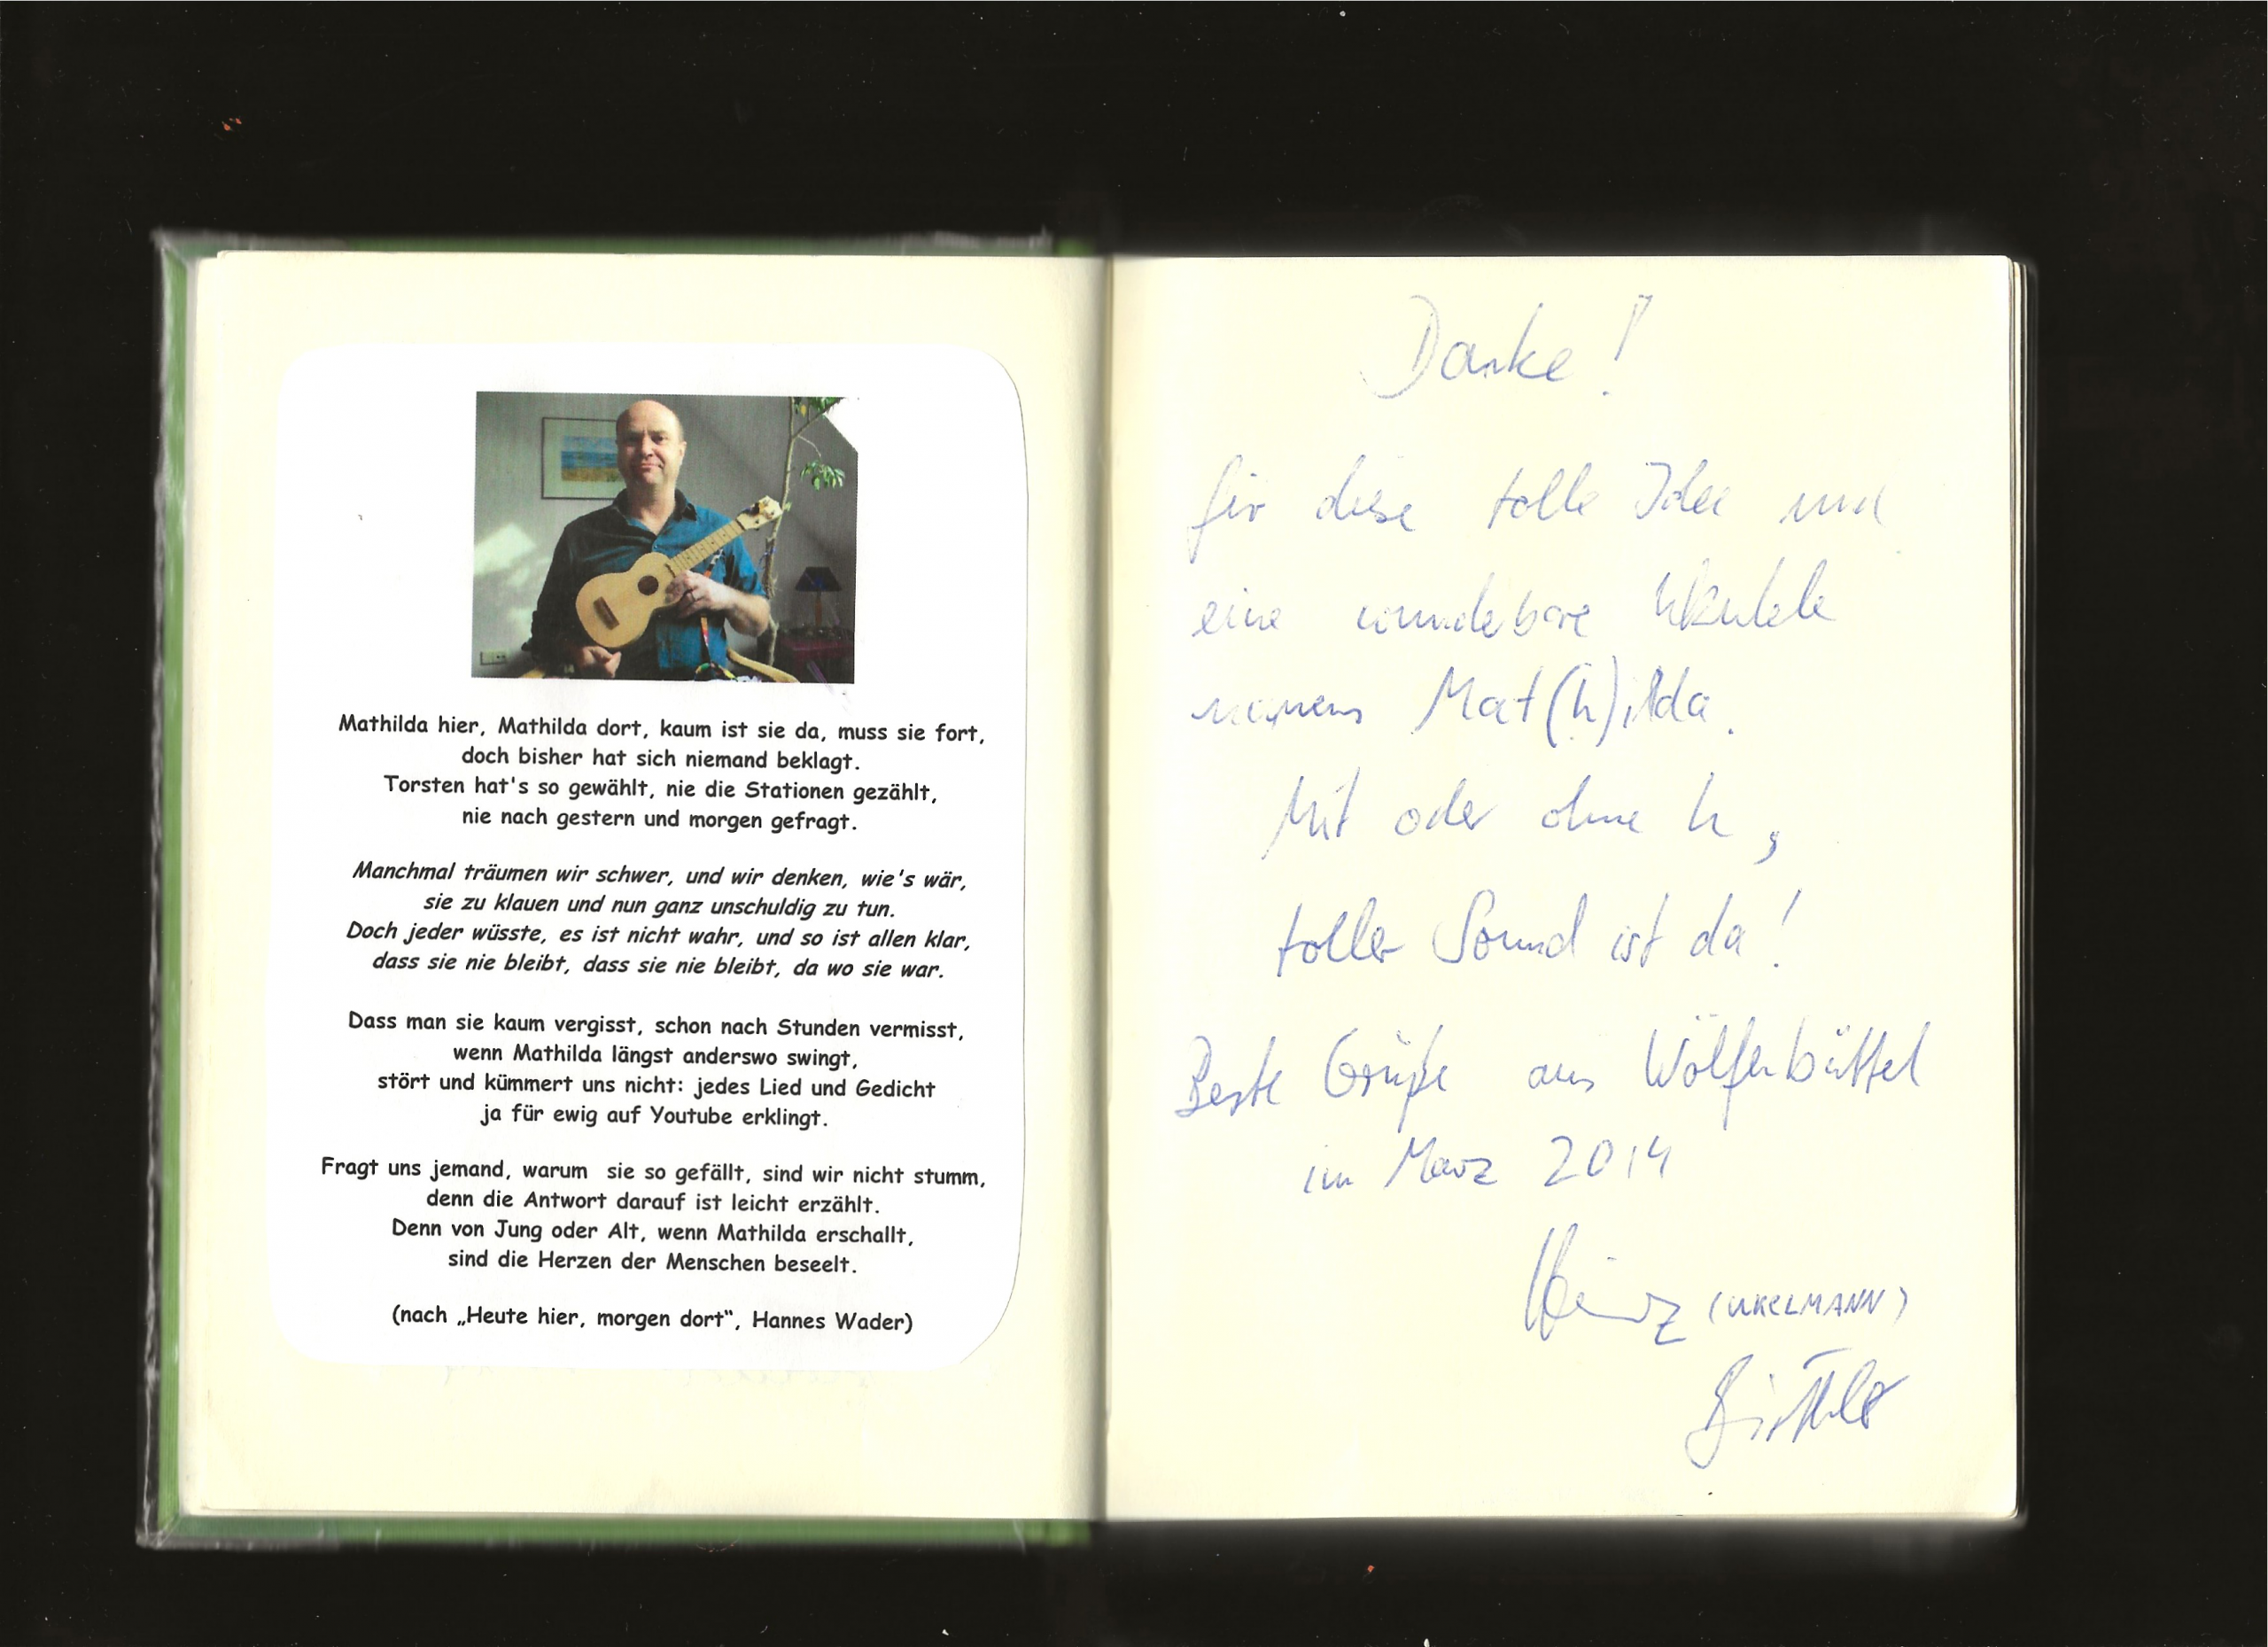 Mathilda hier, Mathilda dort, kaum ist sie da, muss sie fort,
doch bisher hat sich niemand beklagt.
Torsten hat's so gewählt, nie die Stationen gezählt,
nie nach gestern und morgen gefragt.
Manchmal träumen wir schwer, und wir denken, wie's wär,
sie zu klauen und nun ganz unschuldig zu tun.
Doch jeder wüsste, es ist nicht wahr, und so ist allen klar,
dass sie nie bleibt, dass sie nie bleibt, da wo sie war.
Dass man sie kaum vergisst, schon nach Stunden vermisst,
wenn Mathilda längst anderswo swingt,
stört und kümmert uns nicht: jedes Lied und Gedicht
ja für ewig auf Youtube erklingt.
Fragt uns jemand, warum sie so gefällt, sind wir nicht stumm,
denn die Antwort darauf ist leicht erzählt.
Denn von Jung oder Alt, wenn Mathilda erschallt,
sind die Herzen der Menschen beseelt.
(nach „Heute hier, morgen dort“, Hannes Wader)
Danke!
für diese tolle Idee und
eine wunderbare Ukulele
namens Mat(h)ilda.
Mit oder ohne h,
toller Sound ist da!
Beste Grüße aus Wölfenbüttel
im März 2014
(UKELMANN)